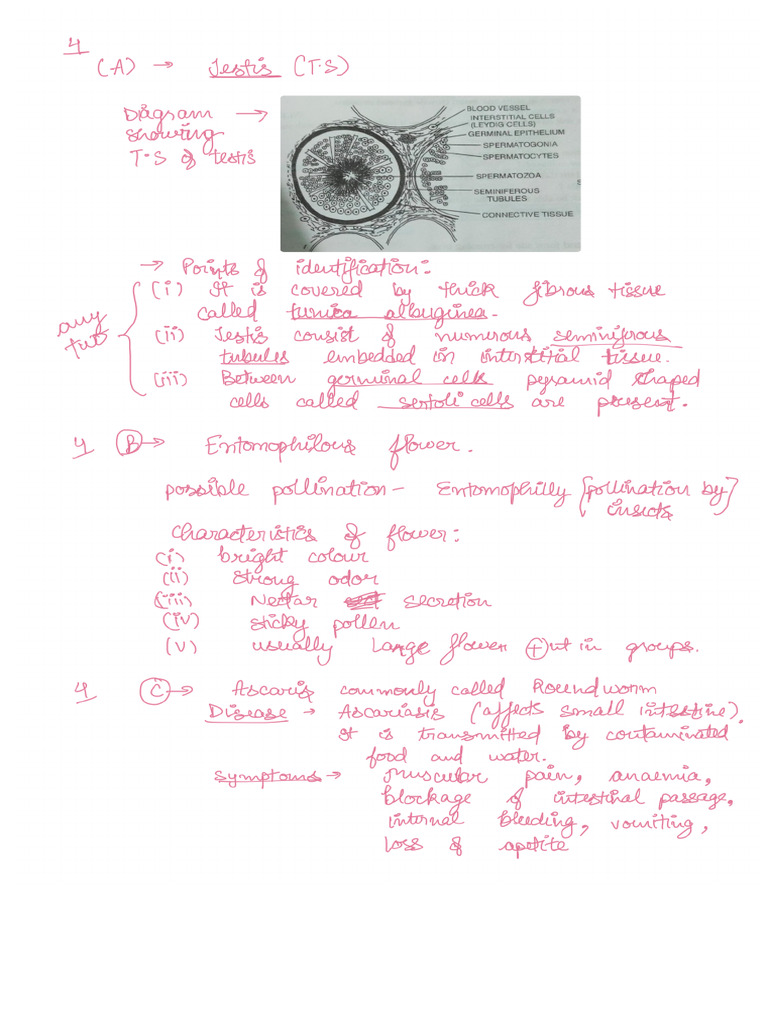 4
(A) → Testis (T.S)
Diagram → showing T.S of testis
BLOOD VESSEL
INTERSTITIAL CELLS
(LEYDIG CELLS)
GERMINAL EPITHELIUM
SPERMATOGONIA
SPERMATOCYTES
SPERMATOZOA
SEMINIFEROUS
TUBULES
CONNECTIVE TISSUE
→ Points of identification:
any two
(i) It is covered by thick fibrous tissue
called tunica albuginea.
(ii) Testis consist of numerous seminiferous
tubules embedded in interstitial tissue.
(iii) Between germinal cells pyramid shaped
cells called sertoli cells are present.
4 (B) → Entomophilous flower.
possible pollination - Entomophilly [pollination by insects]
characteristics of flower:
(i) bright colour
(ii) strong odor
(iii) Nectar secretion
(iv) sticky pollen
(v) usually Large flower but in groups.
4 (C) → Ascaris commonly called Roundworm
Disease → Ascariasis (affects small intestine).
It is transmitted by contaminated
food and water.
Symptoms → muscular pain, anaemia,
blockage of intestinal passage,
internal bleeding, vomiting,
loss of apetite